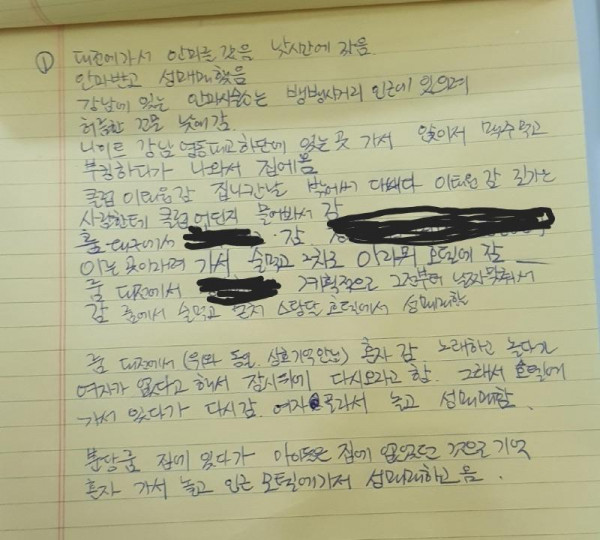 ① 대전에가서 안마를 갔음 낮시간에 갔음
안마받고 성매매했음
강남에 있는 안마시술소는 뱅뱅사거리 인근에 있으며
허름한 건물 낮에감
나이트 강남 영동대교하단에 있는곳 가서 앉아서 맥주먹고
부킹하다가 나와서 집에옴
클럽 이태원감 집나간날 밖에서 다
이태원감 길가는
사람한테 클럽어딘지 물어봐서 감
룸 대전에서 감
아는 곳이라며 가서 술먹고 2차로 이라며 호텔에 감
룸 대전에서 계획적으로 그전부터 날짜맞춰서
감 룸에서 술먹고 호텔에서 성매매함
룸 대전에서 (위와 동일 상호기억안남) 혼자감. 노래하고 놀다가
여자가 없다고 해서 잠시뒤에 다시오라고 함. 그래서 호텔에
가서 있다가 다시감. 여자 골라서 놀고 성매매함.
분당룸 집에 있다가 아이들은 집에 없었던 것으로 기억
혼자 가서 놀고 인근 모텔에가서 성매매하고 옴.